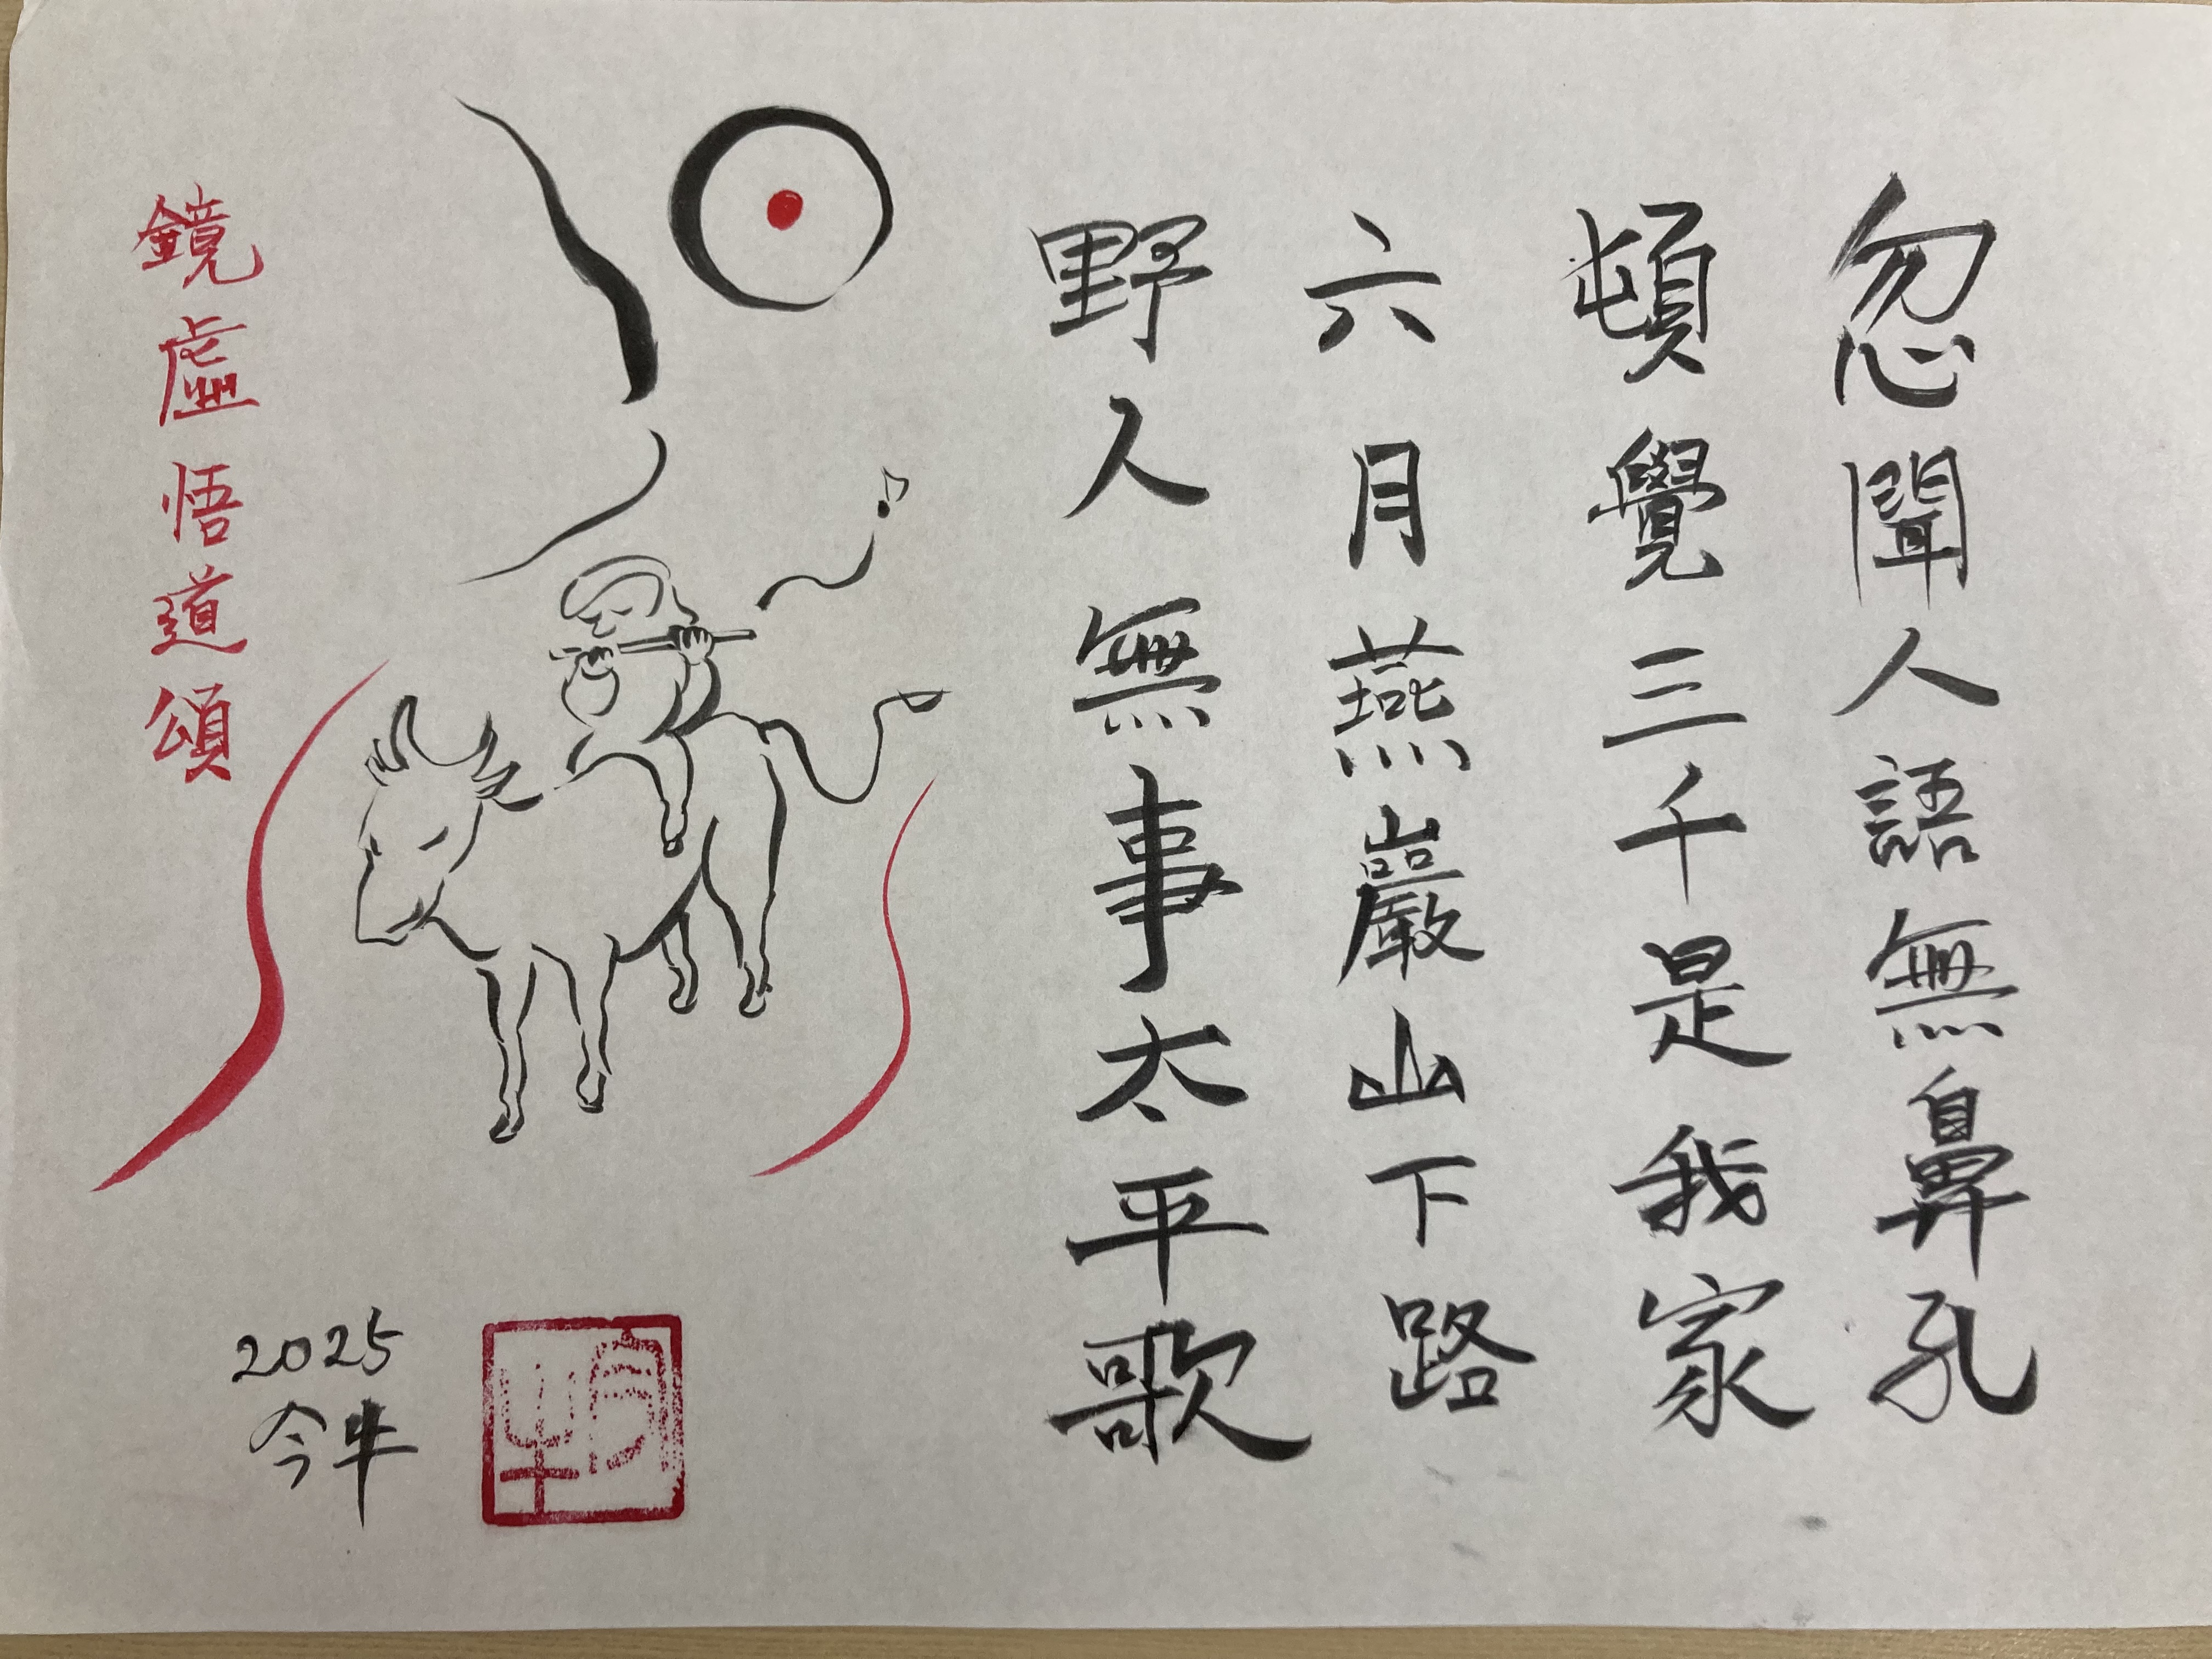 忽聞人語無鼻孔
頓覺三千是我家
六月燕巖山下路
野人無事太平歌
鏡虛悟道頌
2025
今牛